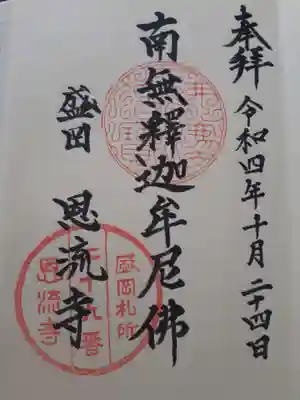 奉拝 令和四年十月二十四日
南無釋迦牟尼佛
盛岡 恩流寺
盛岡札所
恩流寺